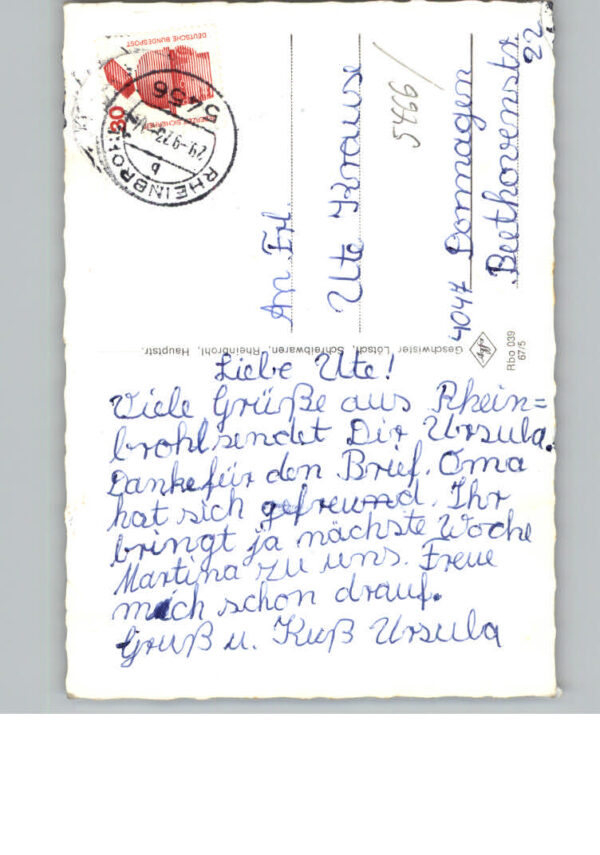 Liebe Ute!
Viele Grüße aus Rhein=
brohl sendet Dir Ursula.
Danke für den Brief. Oma
hat sich gefreund. Ihr
bringt ja nächste Woche
Martina zu uns. Freue
mich schon drauf.
Gruß u. Kuß Ursula
An Frl.
Ute Krause
4047 Dormagen
Beethovenstr.
22
5466/
Geschwister Lötsch, Schreibwaren, Rheinbrohl, Hauptstr.
Rbo 039
67/5
DEUTSCHE BUNDESPOST
30
5456
RHEINBROHL
b